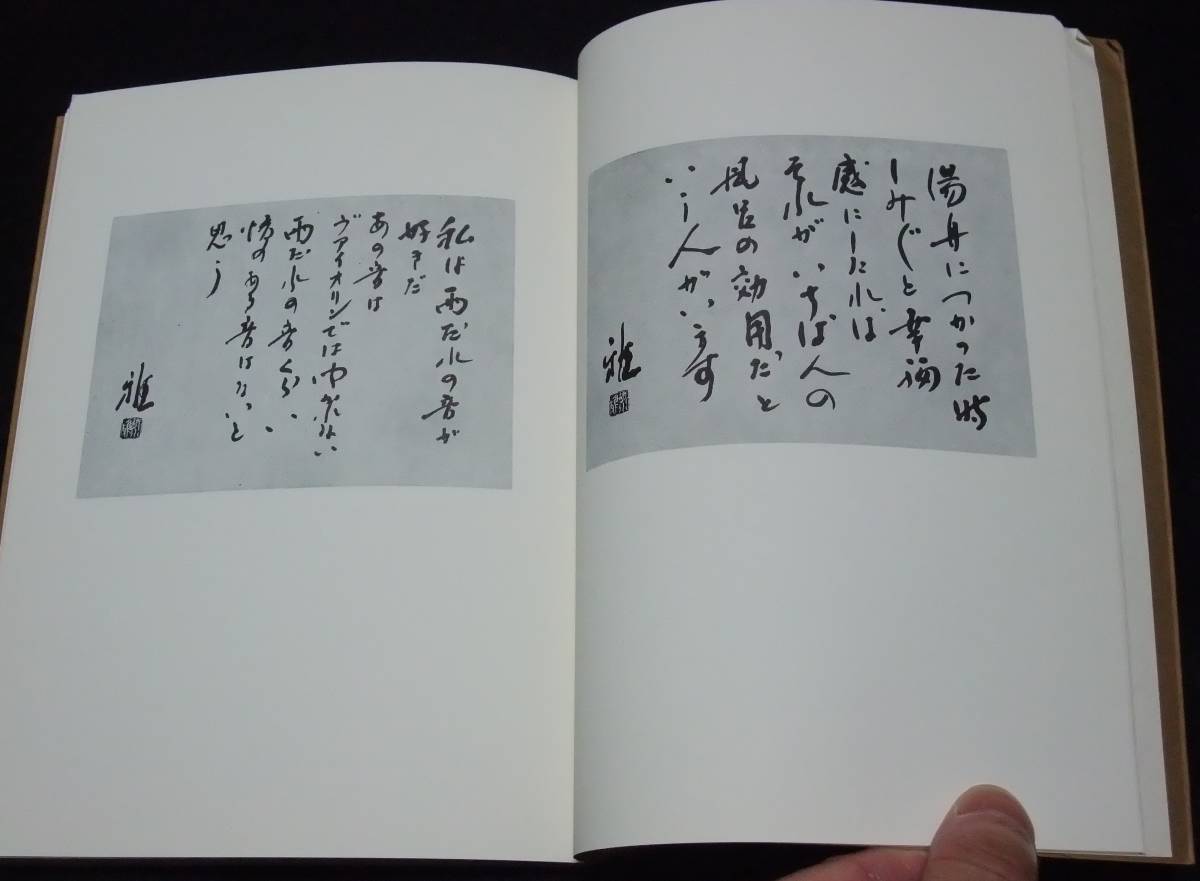 湯舟につかった時
しみ〴〵と幸福
感にしたれば
それがいちばんの
風呂の効用だと
いう人がいます
雅
私は雨だれの音が
好きだ
あの音は
ヴァイオリンでは出来ない
雨だれの音くらい
情のある音はないと
思う
雅